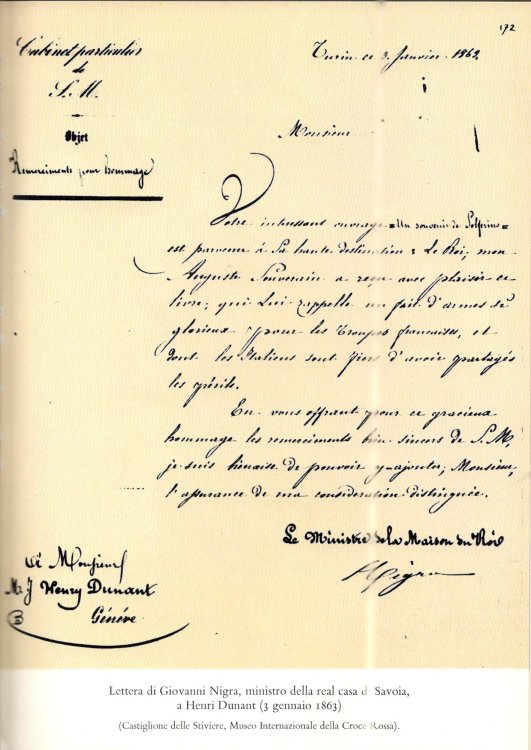 172
Cabinet particulier
de
S. M.
Objet
Remerciments pour hommage
Turin ce 3. Janvier 1863.
Monsieur
Votre intressant ouvrage = Un souvenir de Solferino =
est parvenu à Sa haute destination : Le Roi, mon
Auguste Souverain a reçu avec plaisir ce
livre; qui Lui rappelle un fait d'armes si
glorieux pour les Troupes francaises, et
dont les Italiens sont fiers d'avoir partagés
les périls.
En vous offrant pour ce gracieux
hommage les remerciments bien sincers de S. M,
je suis bienaise de pouvoir y ajouter, Monsieur,
l'assurance de ma consideration distinguée.
Le Ministre de la Maison du Roi
Nigra
à Monsieur
Mr J Henry Dunant
Généve
Lettera di Giovanni Nigra, ministro della real casa d Savoia,
a Henri Dunant (3 gennaio 1863)
(Castiglione delle Stiviere, Museo Internazionale della Croce Rossa).